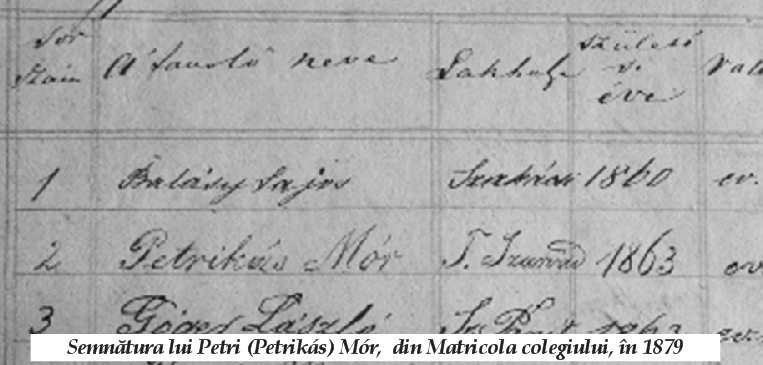 Sor szám A' tanuló neve Lakhelye születési éve Vall
1 Balásy Lajos 1860 ev.
2 Petrikás Mór T. Szarvad 1863 ev
3 László 1863
Semnătura lui Petri (Petrikás) Mór, din Matricola colegiului, în 1879